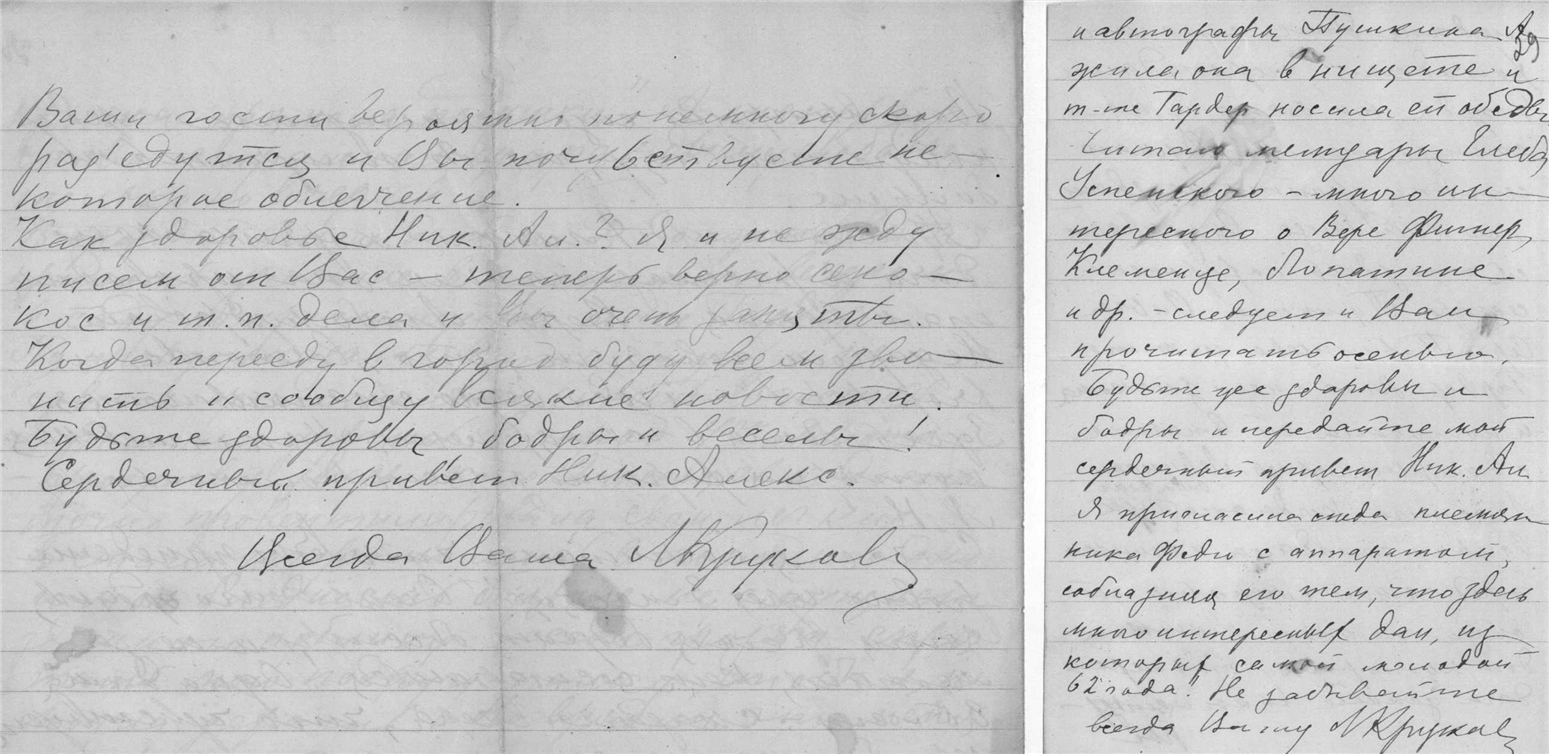 Ваши гости вероятно понемногу скоро
раз'едутся и Вы почувствуете не-
которое облегчение.
Как здоровье Ник. Ал.? Я и не жду
писем от Вас – теперь верно сено-
кос и т.п. дела и Вы очень заняты.
Когда перееду в город буду всем зво-
нить и сообщу всякие новости.
Будьте здоровы бодры и веселы!
Сердечный привет Ник. Алекс.
Всегда Ваша МКрукова
39
и автографы Пушкина. А
жила она в нищете и
т-те Гардер носила ей обеды
Читаю мемуары Глеба
Успенского – много ин-
тересного о Вере Фигнер,
Клеменце, Лопатине
и др. – следует и Вам
прочитать осенью.
Будьте же здоровы и
бодры и передайте мой
сердечный привет Ник. Ал.
Я пригласила сюда племян-
ника Федю с аппаратом,
соблазняя его тем, что здесь
много интересных дам, из
которых самой молодой
62 года! Не забывайте
всегда Вашу МКрукову